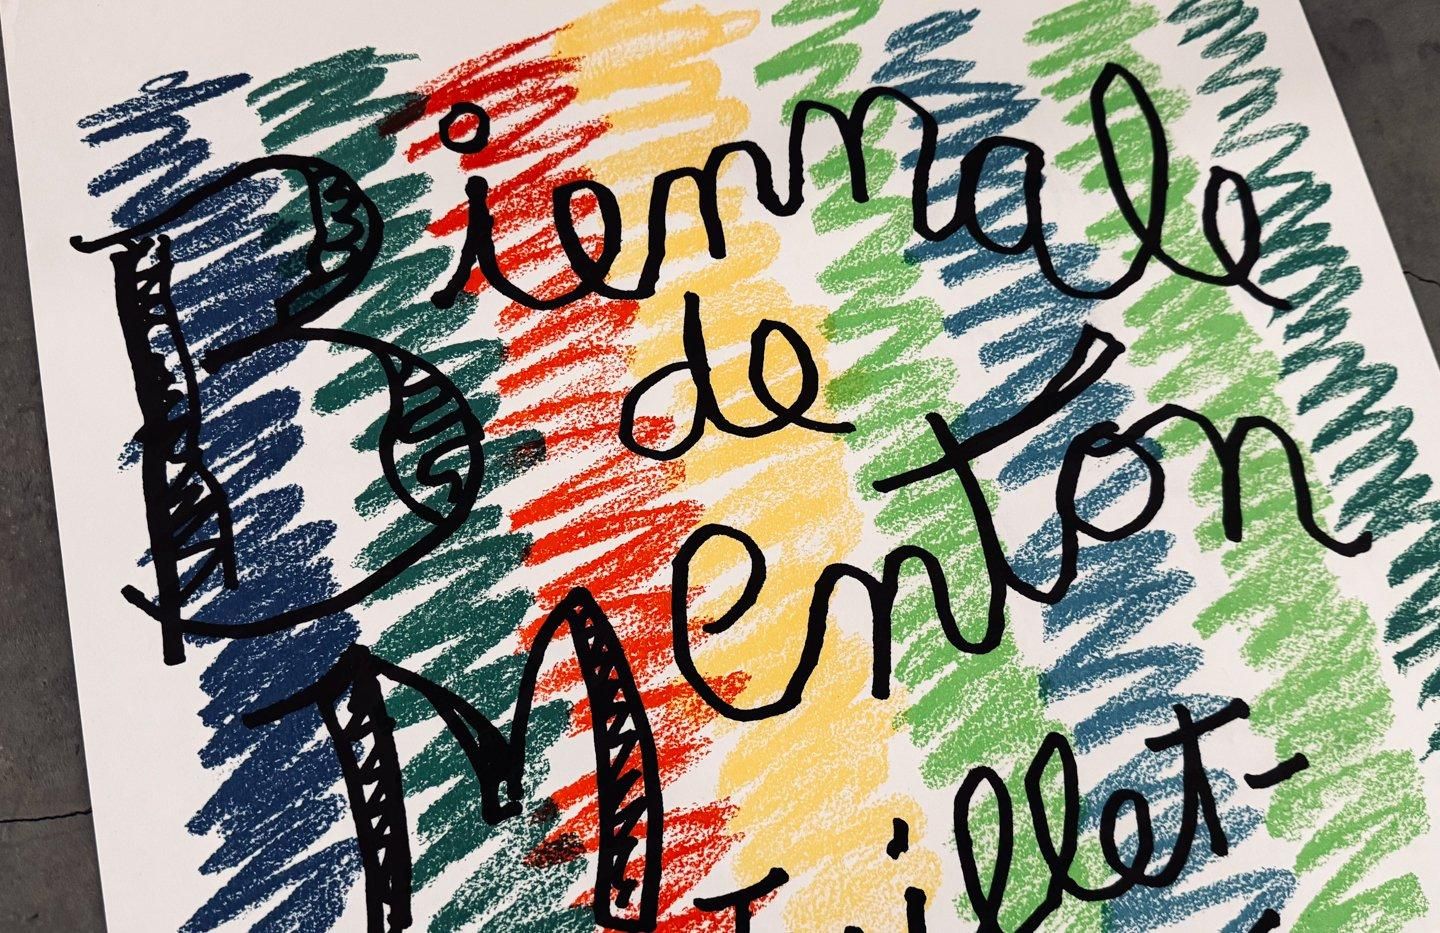 Biennale
de
Menton
Juillet-